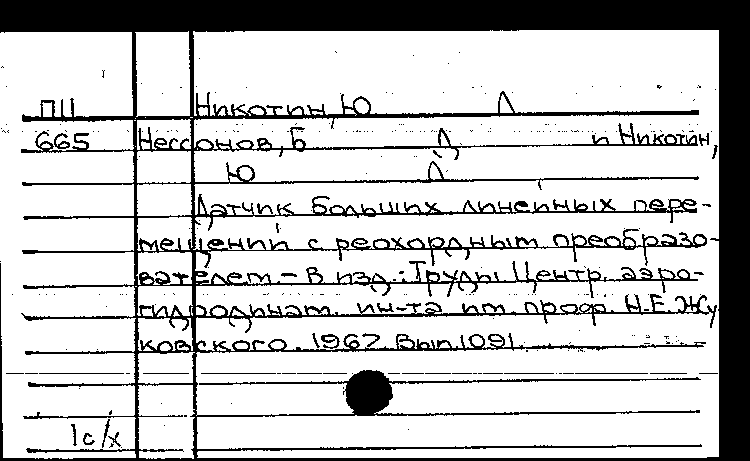 П11 Никотин, Ю Л
665 Нессонов, Б Д и Никотин,
Ю Л
Датчик больших линейных пере-
мещений с реохордным преобразо-
вателем. – В изд.: Труды Центр. аэро-
гидродинам. ин-та им. проф. Н.Е. Жу
ковского. 1967. Вып. 1091.
1с/х